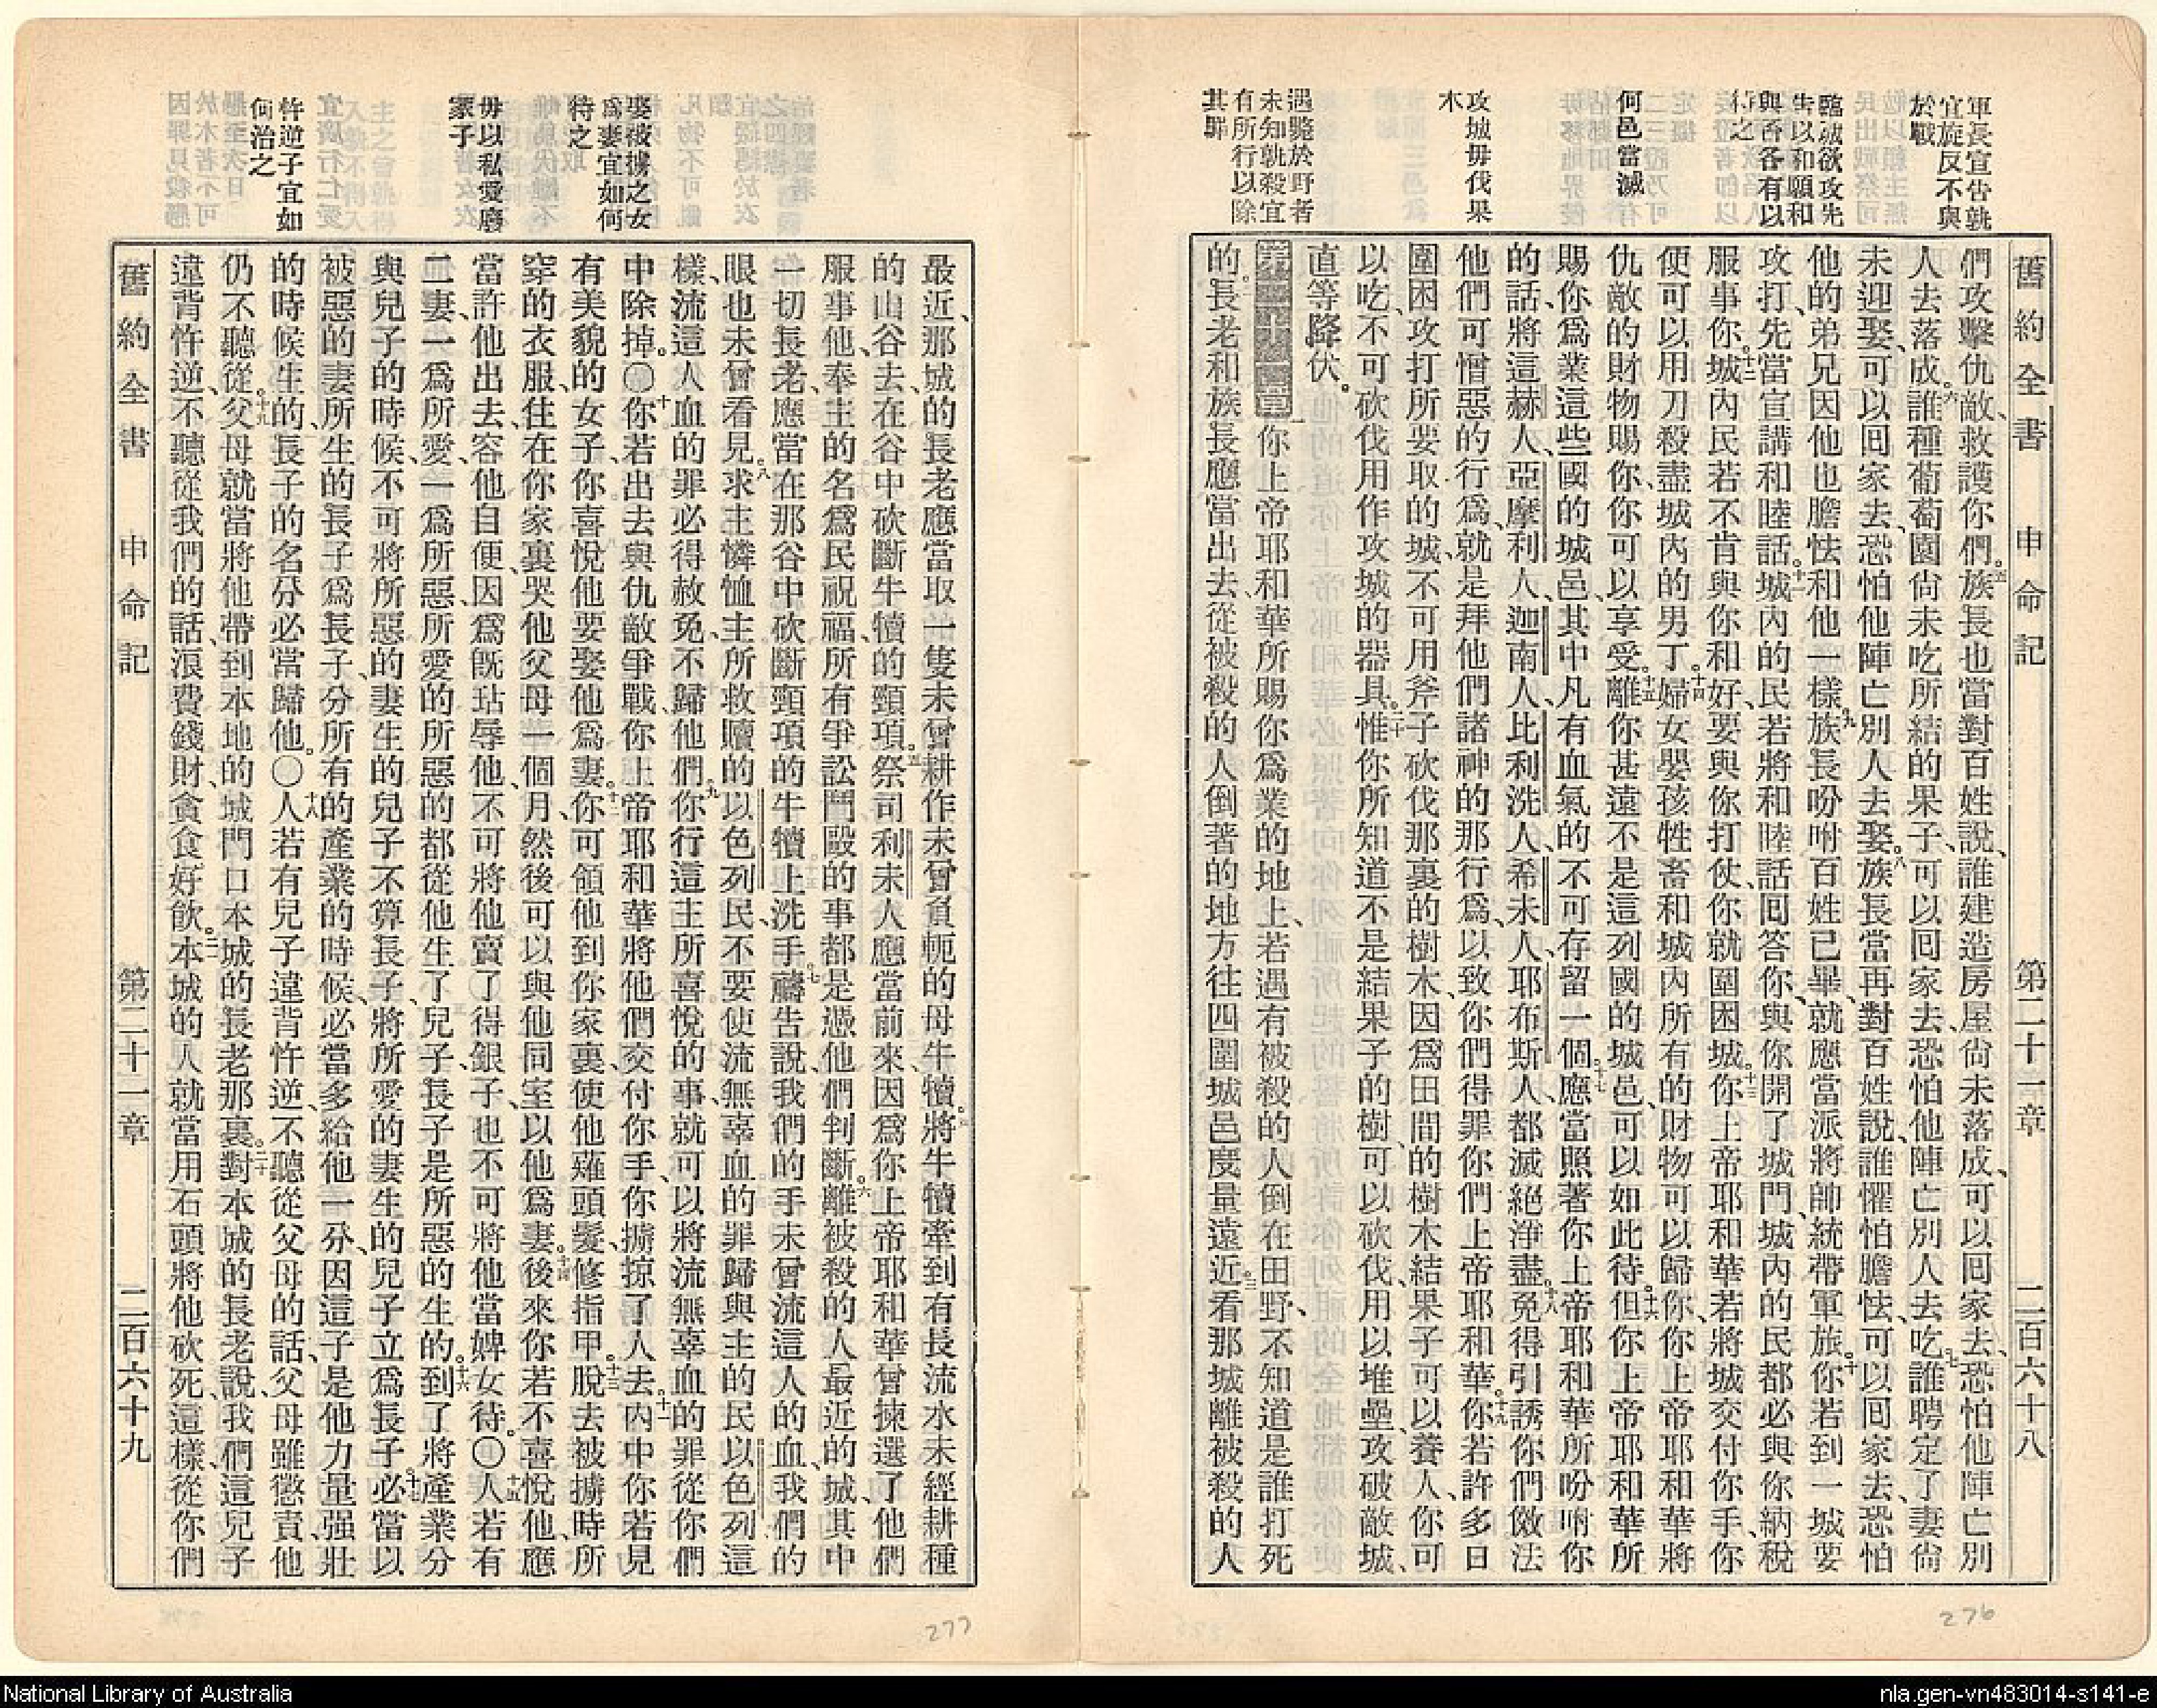 舊約全書 申命記 第二十一章 二百六十八
軍長宣告孰
宜旋反不與
於戰
臨城欲攻先
告以和願和
與否各有以
待之
何邑當滅
攻城毋伐果
木
遇斃於野者
未知孰殺宜
有所行以除
其罪
們攻擊仇敵、救護你們。五族長也當對百姓說、誰建造房屋尙未落成、可以回家去、恐怕他陣亡別
人去落成。六誰種葡萄園尙未吃所結的果子、可以回家去、恐怕他陣亡別人去吃。七誰聘定了妻尙
未迎娶、可以回家去、恐怕他陣亡別人去娶。八族長當再對百姓說、誰懼怕膽怯、可以回家去、恐怕
他的弟兄因他也膽怯和他一樣。九族長吩咐百姓已畢、就應當派將帥統帶軍旅。十你若到一城要
攻打、先當宣講和睦話。十一城內的民若將和睦話回答你、與你開了城門、城內的民都必與你納稅
服事你。十二城內民若不肯與你和好、要與你打仗、你就圍困城。十三你上帝耶和華若將城交付你手、你
便可以用刀殺盡城內的男丁。十四婦女嬰孩牲畜和城內所有的財物可以歸你、你上帝耶和華將
仇敵的財物賜你、你可以享受。十五離你甚遠不是這列國的城邑、可以如此待。十六但你上帝耶和華所
賜你爲業這些國的城邑、其中凡有血氣的不可存留一個。十七應當照著你上帝耶和華所吩咐你
的話、將這赫人、亞摩利人、迦南人、比利洗人、希未人、耶布斯人、都滅絕淨盡。十八免得引誘你們傚法
他們可憎惡的行爲、就是拜他們諸神的那行爲、以致你們得罪你們上帝耶和華。十九你若許多日
圍困攻打所要取的城、不可用斧子砍伐那裏的樹木、因爲田間的樹木結果子可以養人、你可
以吃、不可砍伐用作攻城的器具。二十惟你所知道不是結果子的樹、可以砍伐、用以堆壘、攻破敵城、
直等降伏。
第二十一章一你上帝耶和華所賜你爲業的地上、若遇有被殺的人倒在田野、不知道是誰打死
的。二長老和族長應當出去、從被殺的人倒著的地方往四圍城邑度量遠近。三看那城離被殺的人
最近、那城的長老應當取一隻未曾耕作未曾負軛的母牛犢。四將牛犢牽到有長流水未經耕種
的山谷去、在谷中砍斷牛犢的頸項。五祭司利未人應當前來、因爲你上帝耶和華曾揀選了他們
服事他、奉主的名爲民祝福、所有爭訟鬥毆的事都是憑他們判斷。六離被殺的人最近的城、其中
一切長老、應當在那谷中砍斷頸項的牛犢上洗手。七禱告說、我們的手未曾流這人的血、我們的
眼也未曾看見。八求主憐恤主所救贖的以色列民、不要使流無辜血的罪歸與主的民以色列、這
樣、流這人血的罪必得赦免、不歸他們。九你行這主所喜悅的事、就可以將流無辜血的罪從你們
中除掉。〇十你若出去與仇敵爭戰、你上帝耶和華將他們交付你手、你擄掠了人去。十一內中你若見
有美貌的女子、你喜悅他要娶他爲妻。十二你可領他到你家裏、使他薙頭髮、修指甲。十三脫去被擄時所
穿的衣服、住在你家裏、哭他父母一個月、然後可以與他同室、以他爲妻。十四後來你若不喜悅他、應
當許他出去、容他自便、因爲旣玷辱他、不可將他賣了得銀子、也不可將他當婢女待。〇十五人若有
二妻、一爲所愛、一爲所惡、所愛的所惡的都從他生了兒子、長子是所惡的生的。十六到了將產業分
與兒子的時候、不可將所惡的妻生的兒子不算長子、將所愛的妻生的兒子立爲長子。十七必當以
被惡的妻所生的長子爲長子、分所有的產業的時候、必當多給他一分、因這子是他力量强壯
的時候生的、長子的名分必當歸他。〇十八人若有兒子違背忤逆、不聽從父母的話、父母雖懲責他
仍不聽從。十九父母就當將他帶到本地的城門口本城的長老那裏。二十對本城的長老說、我們這兒子
違背忤逆、不聽從我們的話、浪費錢財、貪食好飲。二一本城的人就當用石頭將他砍死、這樣、從你們
娶被擄之女
爲妻宜如何
待之
毋以私愛廢
冢子
忤逆子宜如
何治之
舊約全書 申命記 第二十一章 二百六十九
276
277
National Library of Australia
nla.gen-vn483014-s141-e